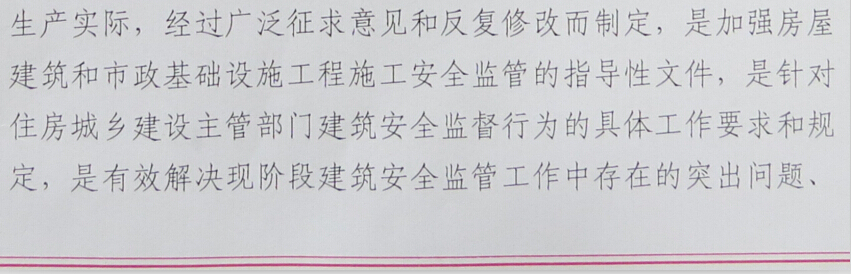 生产实际，经过广泛征求意见和反复修改而制定，是加强房屋
建筑和市政基础设施工程施工安全监管的指导性文件，是针对
住房城乡建设主管部门建筑安全监督行为的具体工作要求和规
定，是有效解决现阶段建筑安全监管工作中存在的突出问题、